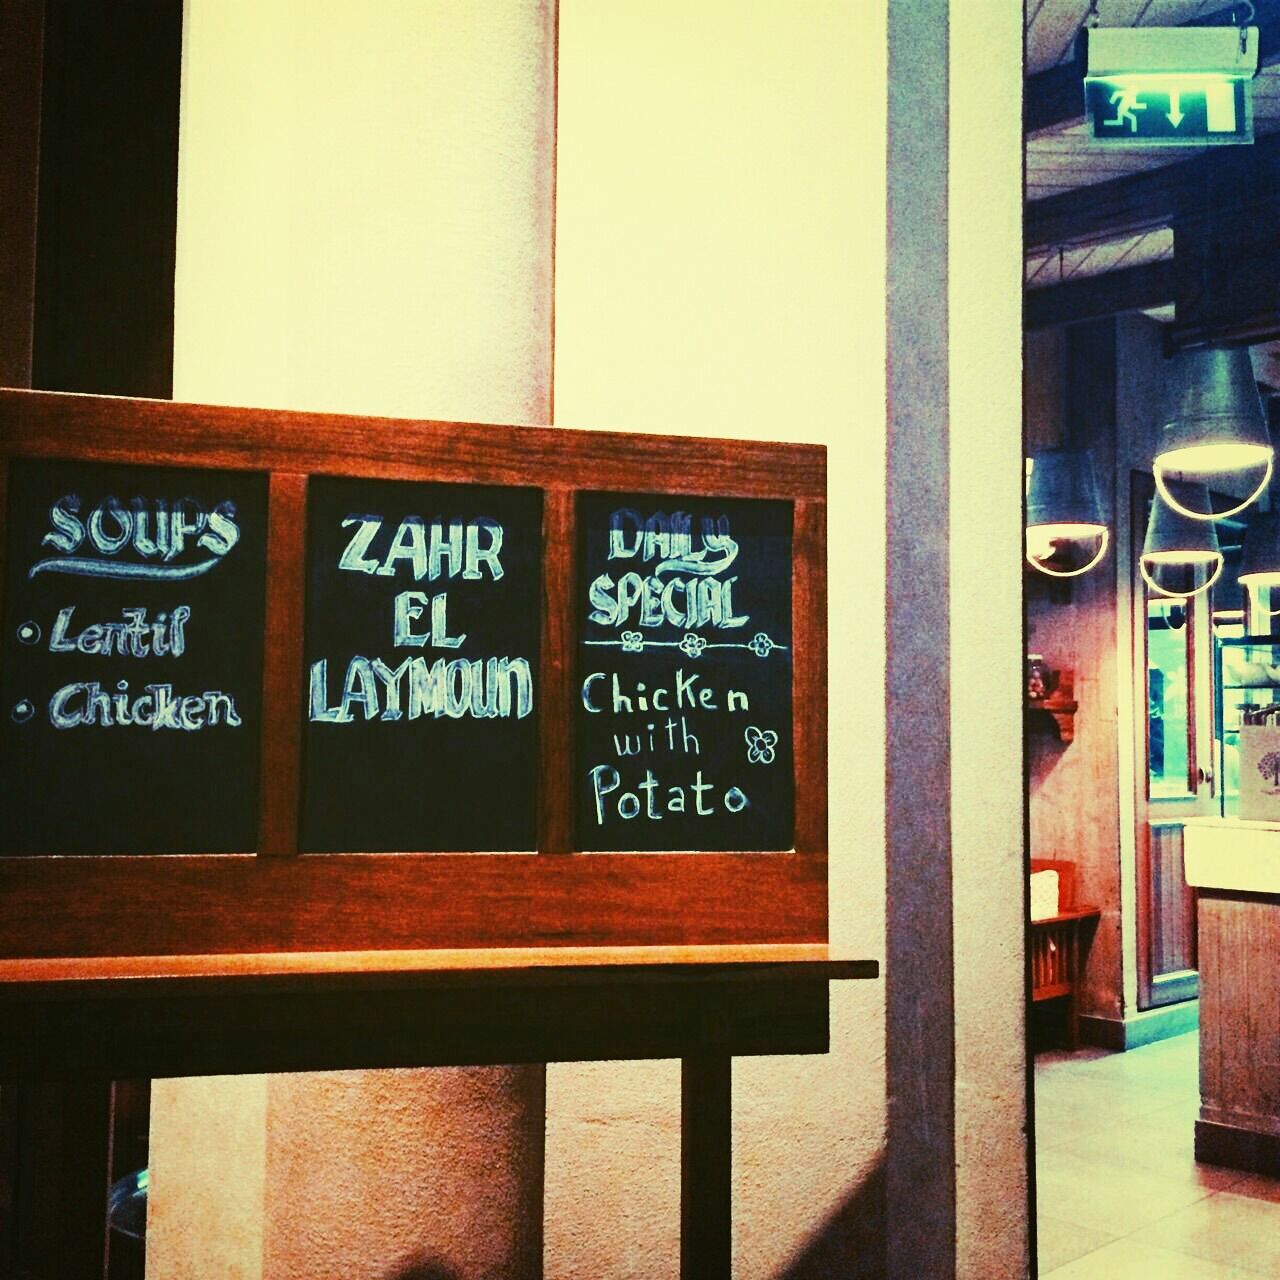 SOUPS
• Lentil
• Chicken
ZAHR
EL
LAYMOUN
DAILY
SPECIAL
Chicken
with
Potato